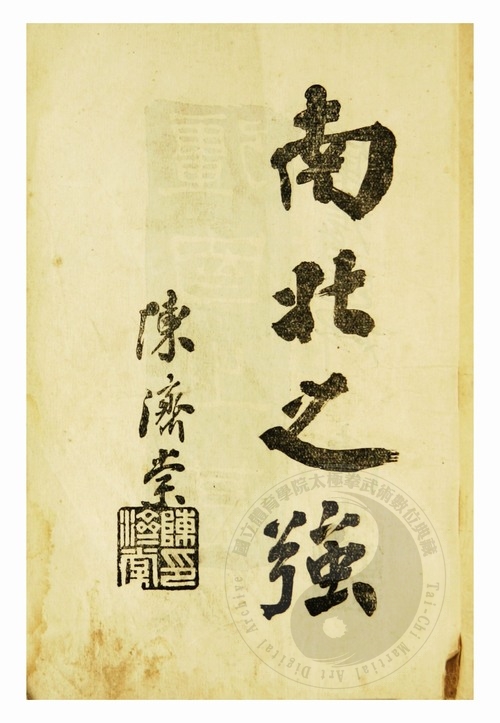 南北之強
陳濟棠
陳濟棠印
國立體育學院太極拳武術數位典藏
Tai-Chi Martial Art Digital Archive